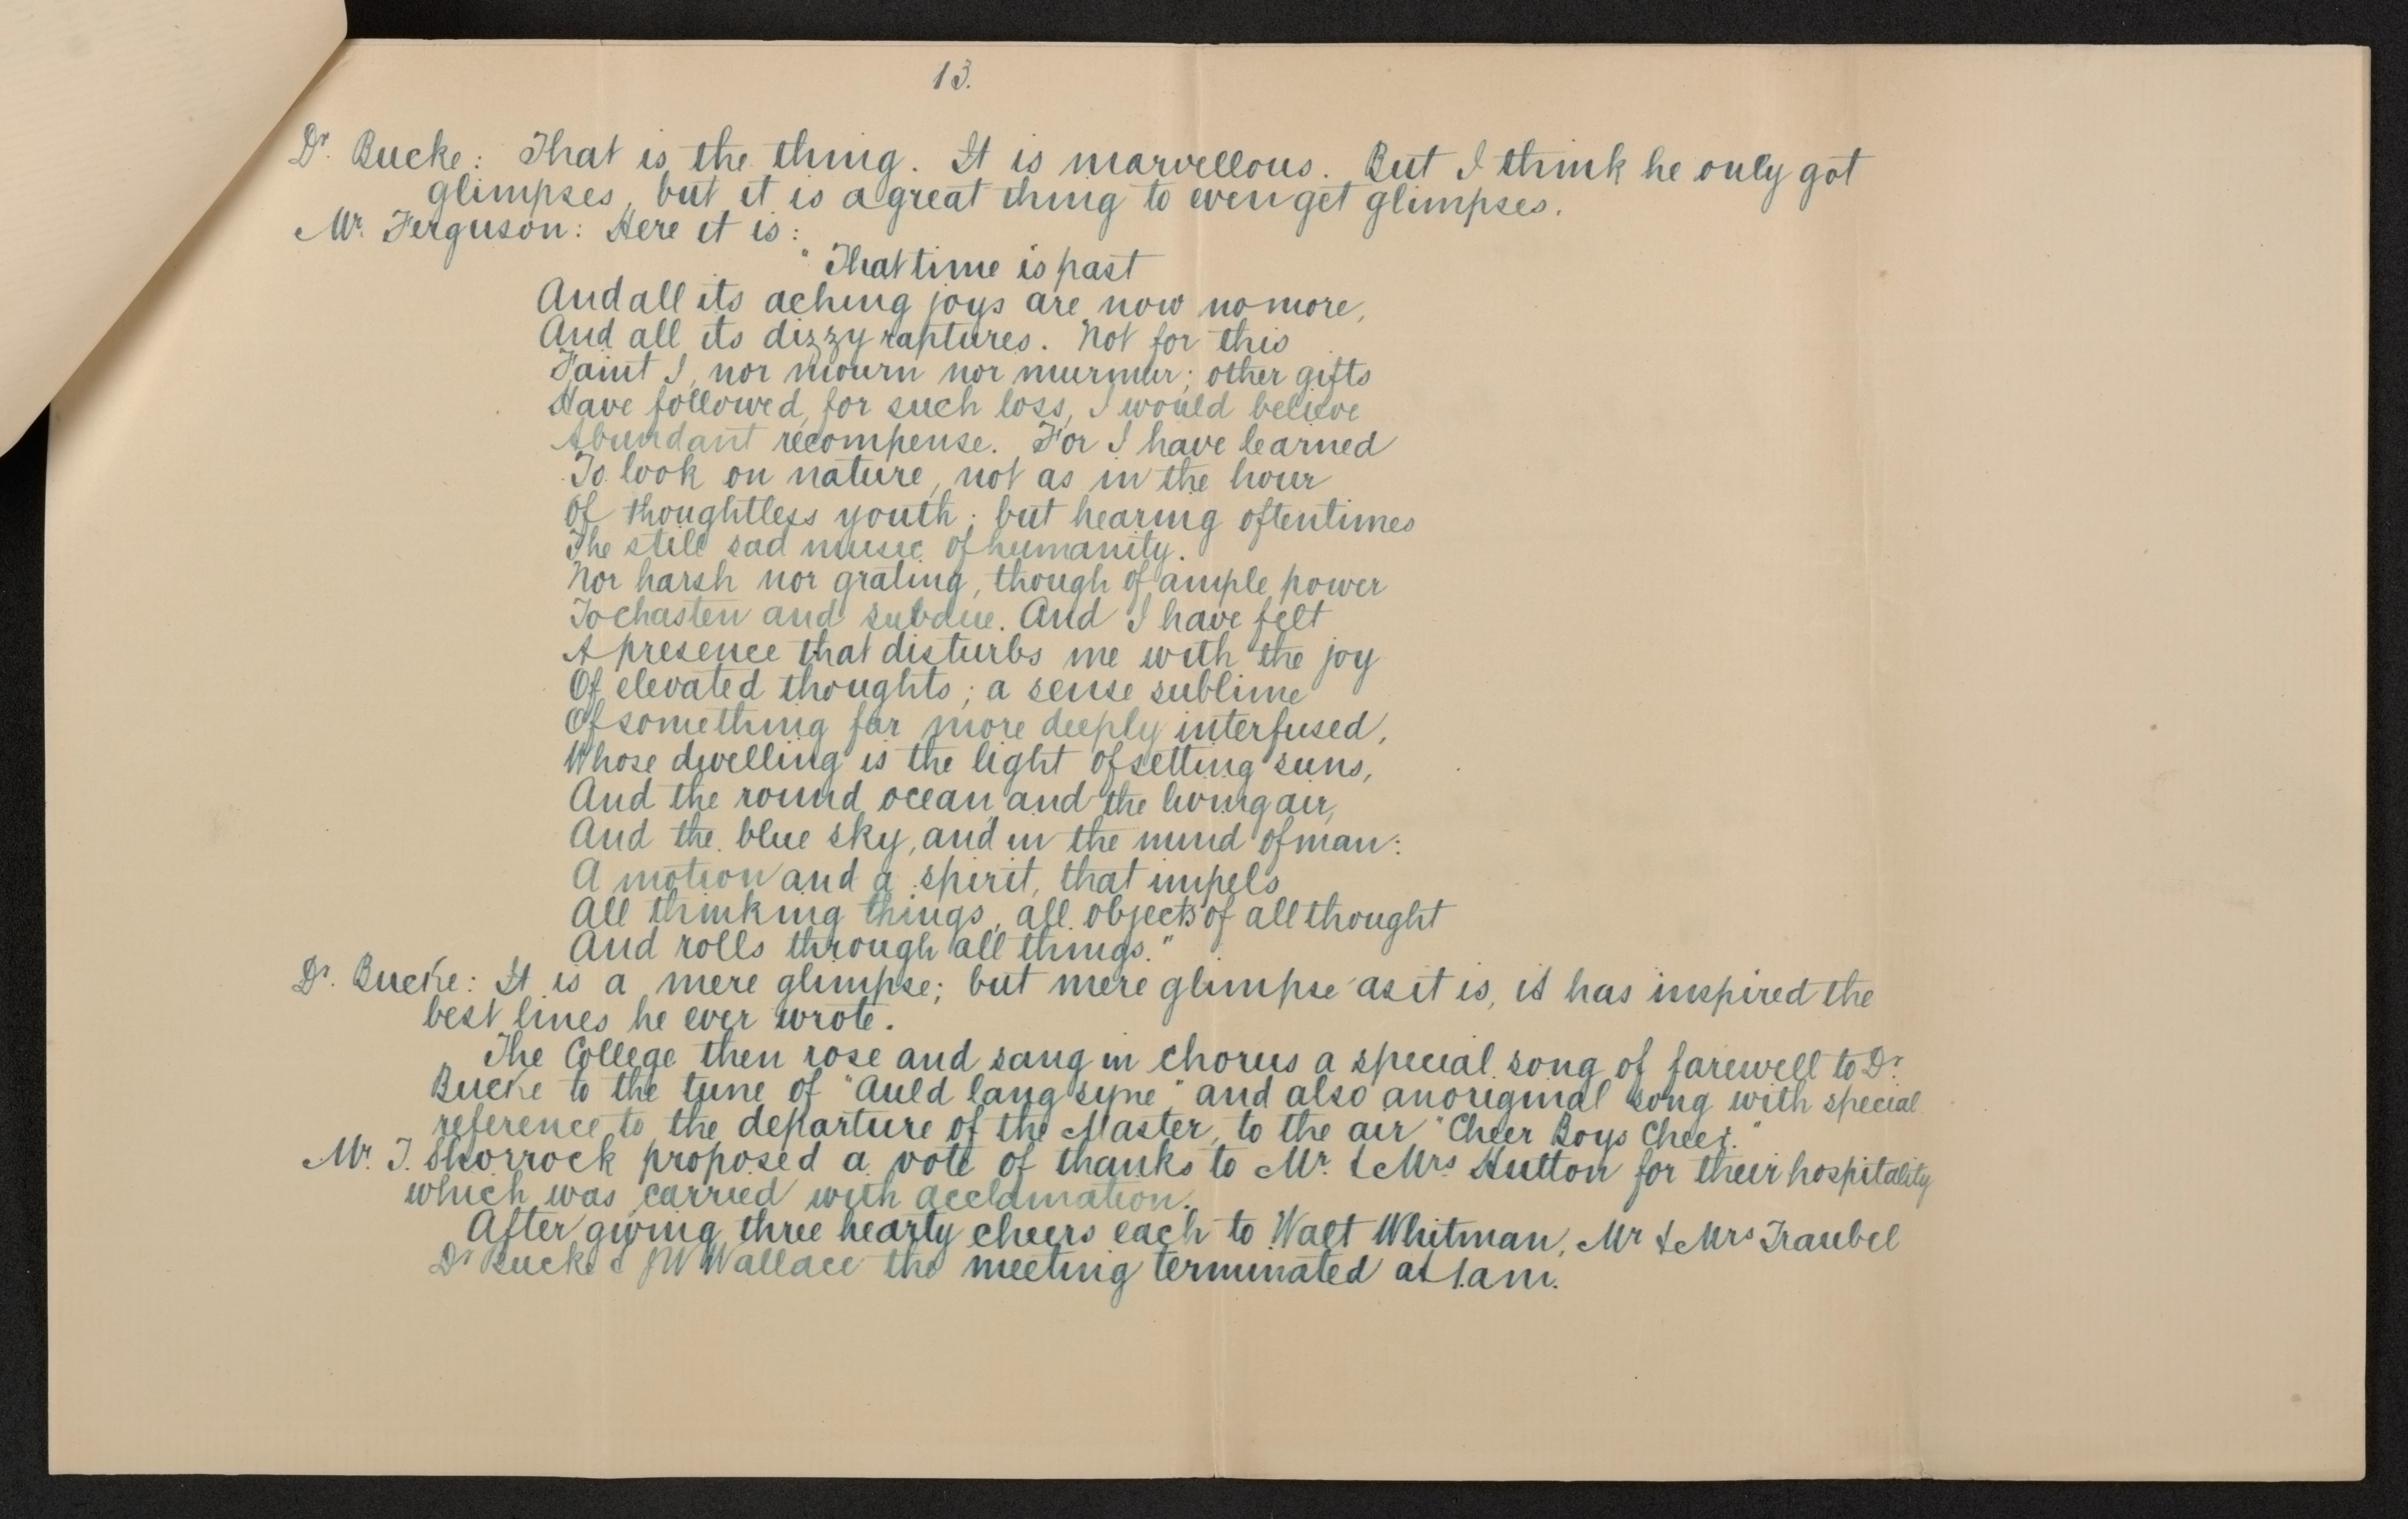 13.
Dr. Bucke: That is the thing. It is marvellous. But I think he only got
glimpses, but it is a great thing to even get glimpses.
Mr. Ferguson: Here it is:
"That time is past
And all its aching joys are now no more,
And all its dizzy raptures. Not for this
Faint I, nor mourn nor murmur; other gifts
Have followed, for such loss, I would believe
Abundant recompense. For I have learned
To look on nature, not as in the hour
Of thoughtless youth; but hearing oftentimes
The still sad music of humanity.
Nor harsh nor grating, though of ample power
To chasten and subdue. And I have felt
A presence that disturbs me with the joy
Of elevated thoughts; a sense sublime
Of something far more deeply interfused,
Whose dwelling is the light of setting suns,
And the round ocean, and the living air,
And the blue sky, and in the mind of man:
A motion and a spirit, that impels
All thinking things, all objects of all thought
And rolls through all things."
Dr. Bucke: It is a mere glimpse; but mere glimpse as it is, it has inspired the
best lines he ever wrote.
The College then rose and sang in chorus a special song of farewell to Dr.
Bucke to the tune of "Auld lang syne" and also an original song with special
reference to the departure of the Master, to the air "Cheer Boys Cheer."
Mr. T. Shorrock proposed a vote of thanks to Mr. & Mrs. Hutton for their hospitality
which was carried with acclamation.
After giving three hearty cheers each to Walt Whitman, Mr & Mrs Traubel
Dr Bucke & JW Wallace the meeting terminated at 1.am.